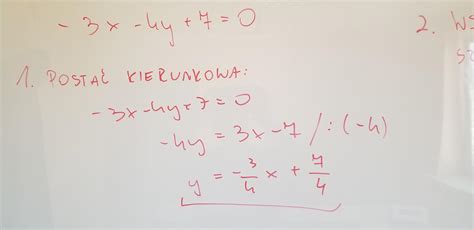 - 3x - 4y + 7 = 0
2. WS
1. POSTAĆ KIERUNKOWA:
-3x - 4y + 7 = 0
-4y = 3x - 7 / : (-4)
y = -3/4 x + 7/4